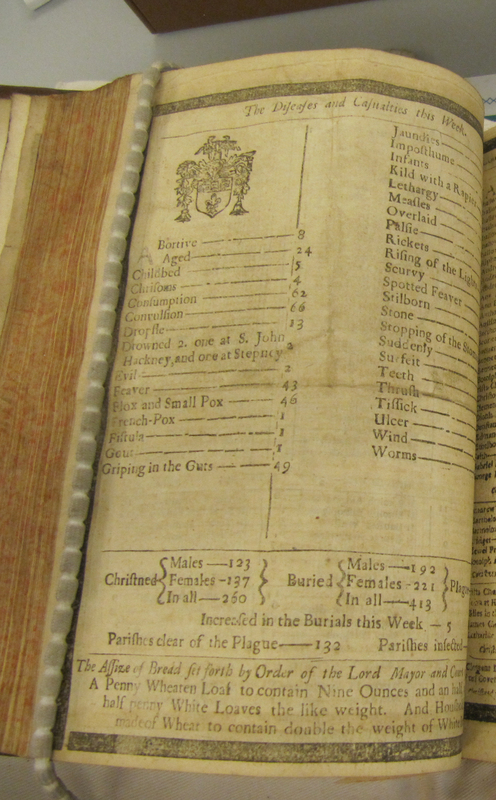 The Diseases and Casualties this Week.
A Bortive 8
Aged 24
Childbed 5
Chrisoms 4
Consumption 62
Convulsion 66
Dropsie 13
Drowned 2. one at S. John
Hackney, and one at Stepney 2
Evil 2
Feaver 43
Flox and Small Pox 46
French-Pox 1
Fistula 1
Gout 1
Griping in the Guts 49
Jaundies
Imposthume
Infants
Kild with a Rapier
Lethargy
Measles
Overlaid
Palsie
Rickets
Rising of the Lights
Scurvy
Spotted Feaver
Stilborn
Stone
Stopping of the Stom
Suddenly
Surfeit
Teeth
Thrush
Tissick
Ulcer
Wind
Worms
Christned Males 123 Females 137 In all 260
Buried Males 192 Females 221 In all 413 Plag
Increased in the Burials this Week 5
Parishes clear of the Plague 132 Parishes infected
The Assize of Bread set forth by Order of the Lord Mayor and Cour
A Penny Wheaten Loaf to contain Nine Ounces and an half
half penny White Loaves the like weight. And Houshol
made of Wheat to contain double the weight of White